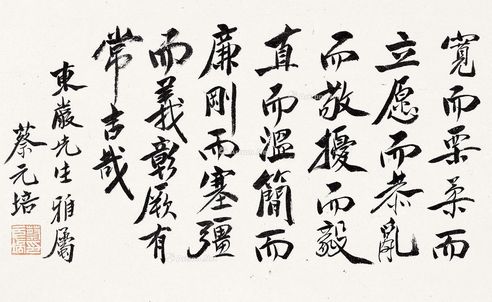 寬而栗柔而
立愿而恭亂
而敬擾而毅
直而溫簡而
廉剛而塞彊
而義彰厥有
常吉哉
東巖先生雅屬
蔡元培